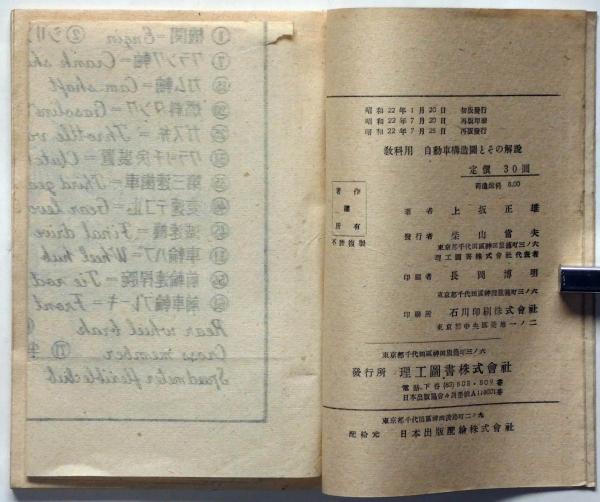 ① 機関=Engin ② シリ
クランク軸=Crank sh
カム軸=Cam shaft
燃料タンク=Gasolin
ガス弁=Throttle
クラッチ装置=Clutc
第三歯車=Third gea
変速テコ=Gear lev
=Final drive
車輪ハブ=Wheel hub
=Tie rod
前輪ブレーキ=Front
Rear wheel brak
Cross member ⑪
Speed meter flexible
昭和22年1月20日 初版発行
昭和22年7月20日 再版印刷
昭和22年7月25日 再版発行
教科用 自動車構造圖とその解説
定價 30圓
著作
權
所有
不許複製
著者 上坂正雄
發行者 柴山當夫
東京都千代田區神田
理工圖書株式會社代表者
印刷者 長岡博明
東京都千代田區神田
印刷所 石川印刷株式會社
東京都中央區
東京都千代田區神田
發行所 理工圖書株式會社
電話
日本出版協會々員
東京都千代田區神田淡路町二ノ九
配給元 日本出版配給株式會社